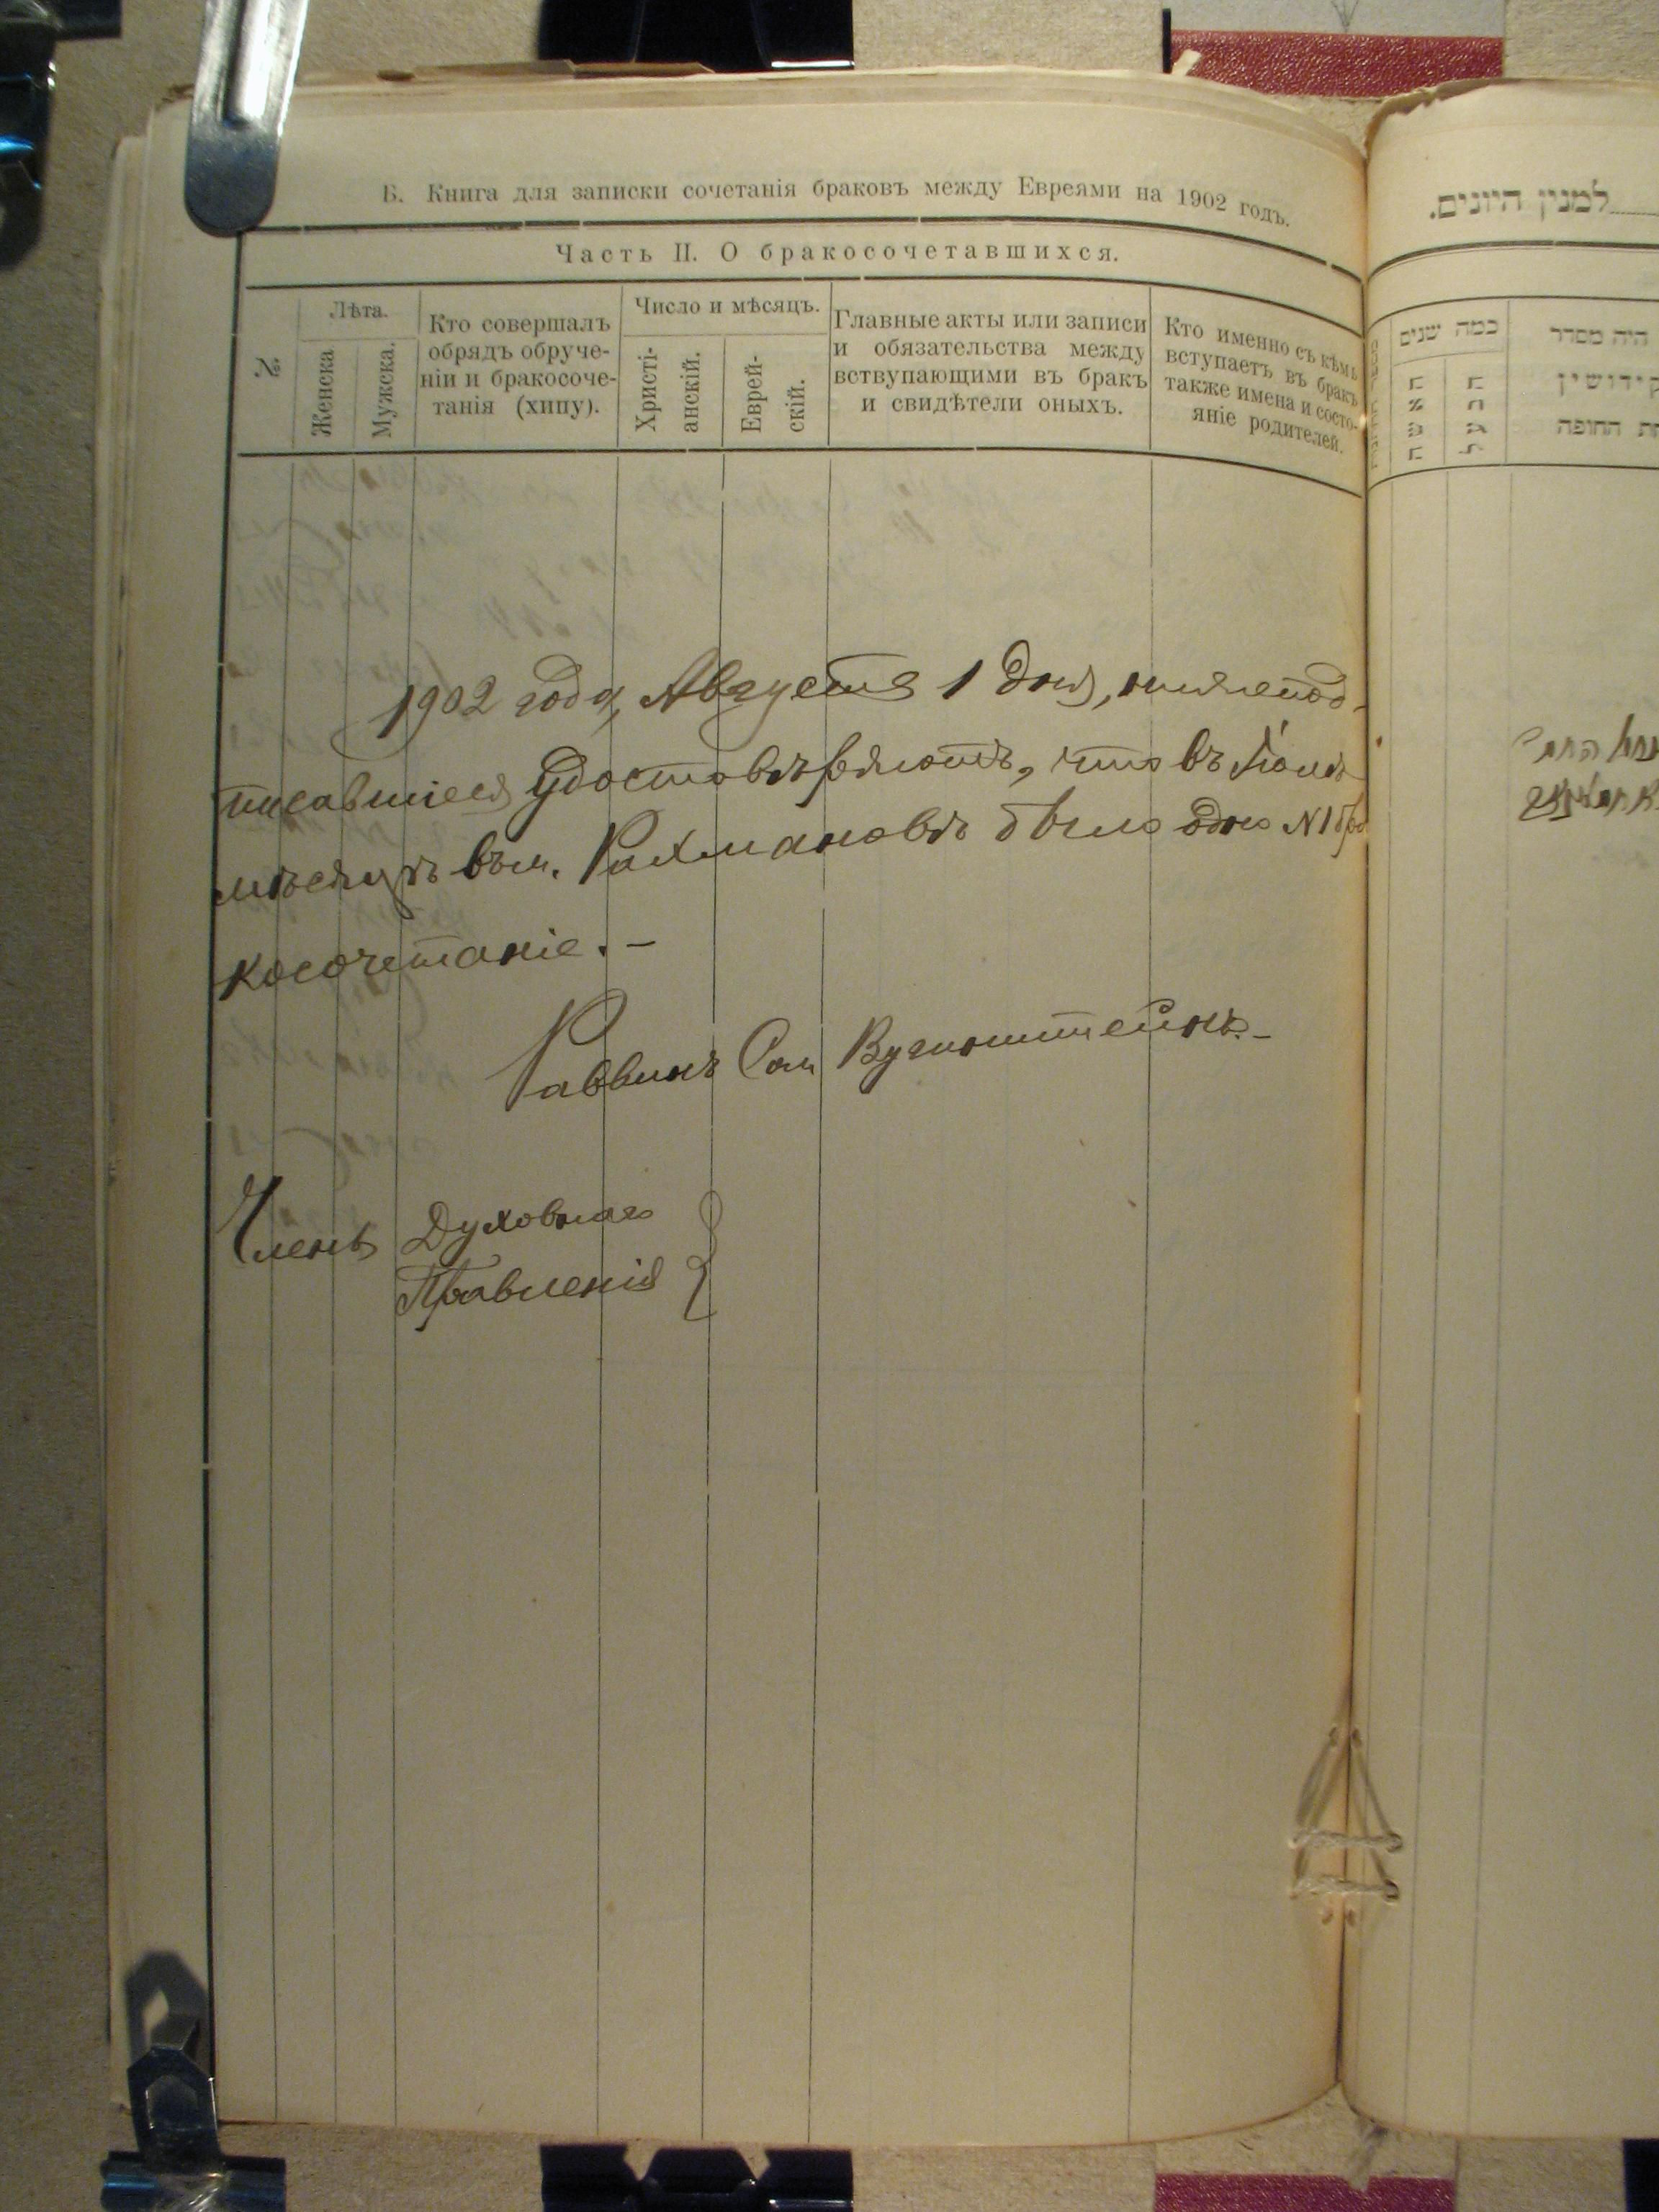 Б. Книга для записки сочетанія браковъ между Евреями на 1902 годъ.
Часть II. О бракосочетавшихся.
№
Лѣта.
Женска
Мужска.
Кто совершалъ
обрядъ обруче-
ніи и бракосоче-
танія (хипу).
Число и мѣсяцъ.
Христі-
анскій.
Еврей-
скій.
Главные акты или записи
и обязательства между
вствупающими въ бракъ
и свидѣтели оныхъ.
Кто именно съ кѣмъ
вступаетъ въ бракъ
также имена и состо-
яніе родителей.
1902 года, Августа 1 дня, нижепод-
писавшіеся удостовѣряютъ, что въ Іюлѣ
мѣсяцѣ въ м. Рахмановѣ было одно №1 бра
косочетаніе. –
Раввинъ Сам
Членъ Духовнаго
Правленія
למנין היונים.
כמה שנים
היה מסדר
קידושין
החופה